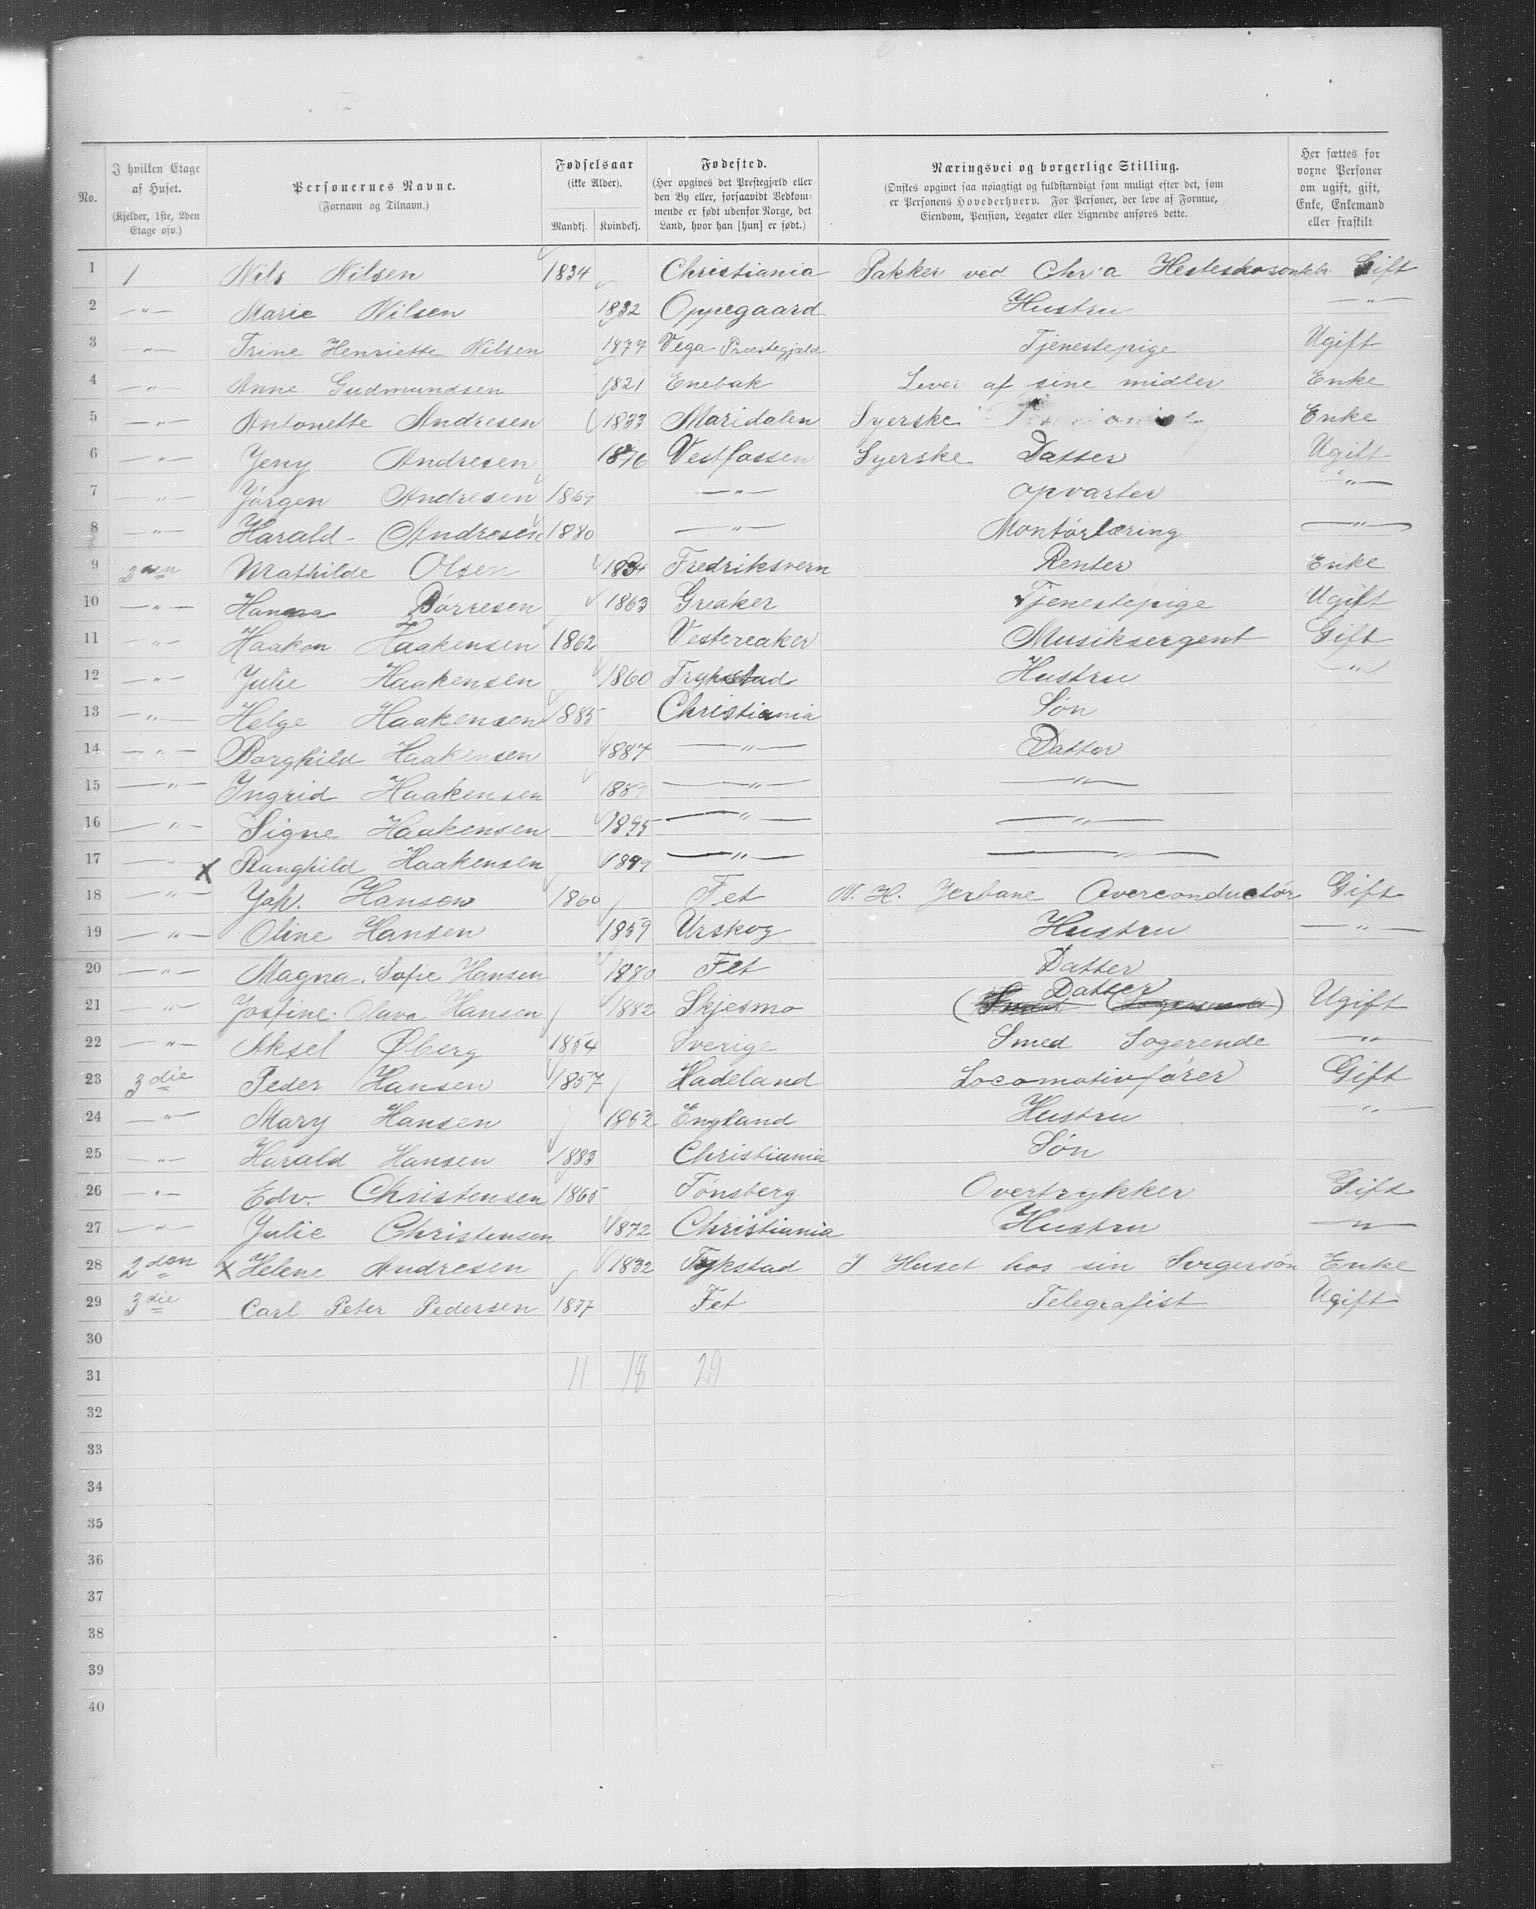 No. | I hvilken Etage af Huset. (Kjelder, 1ste, 2den Etage osv.) | Personernes Navne. (Fornavn og Tilnavn.) | Fødselsaar (ikke Alder). Mandkj. Kvindekj. | Fødested. (Her opgives det Prestegjæld eller den By eller, forsaavidt Vedkommende er født udenfor Norge, det Land, hvor han [hun] er født.) | Næringsvei og borgerlige Stilling. (Ønskes opgivet saa nøiagtigt og fuldstændigt som muligt efter det, som er Personens Hovederhverv. For Personer, der leve af Formue, Eiendom, Pension, Legater eller Lignende anføres dette. | Her sættes for voxne Personer om ugift, gift, Enke, Enkemand eller fraskilt
1 1 Nils Nilsen 1834 Christiania Pakker ved Chr.a Hesteskosømfbr. Gift
2 —"— Marie Nilsen 1832 Oppegaard Hustru —"—
3 —"— Trine Henriette Nilsen 1877 Vega Præstegjæld Tjenestepige Ugift
4 —"— Anne Gudmundsen 1821 Enebak Lever af sine midler Enke
5 —"— Antonette Andresen 1833 Maridalen Syerske Enke
6 —"— Jeny Andresen 1876 Vestfossen Syerske Datter Ugift
7 —"— Jørgen Andresen 1869 —"— opvarter —"—
8 —"— Harald Andresen 1880 —"— Montørlæring —"—
9 2den Mathilde Olsen 1834 Fredriksvern Renter Enke
10 —"— Hanna Børresen 1863 Greaker Tjenestepige Ugift
11 —"— Haakon Haakensen 1862 Vestereaker Musiksergent Gift
12 —"— Julie Haakensen 1860 Trykstad Hustru —"—
13 —"— Helge Haakensen 1885 Christiania Søn
14 —"— Borghild Haakensen 1887 —"— Datter
15 —"— Ingrid Haakensen 1889 —"— —"—
16 —"— Signe Haakensen 1895 —"— —"—
17 —"— X Ranghild Haakensen 1899 —"— —"—
18 —"— Joh. Hansen 1860 Fet N. H. Jerbane Overconductør Gift
19 —"— Oline Hansen 1859 Urskog Hustru —"—
20 —"— Magna Sofie Hansen 1880 Fet Datter
21 —"— Josfine Olava Hansen 1882 Skjesmo Datter (Smed Logerende) Ugift
22 —"— Aksel Øberg 1854 Sverige Smed Logerende —"—
23 3die Peder Hansen 1857 Hadeland Locomotivfører Gift
24 —"— Mary Hansen 1852 England Hustru —"—
25 —"— Harald Hansen 1883 Christiania Søn
26 —"— Edv. Christensen 1865 Tønsberg Overtrykker Gift
27 —"— Julie Christensen 1872 Christiania Hustru —"—
28 2den X Helene Andresen 1832 Trykstad I Huset hos sin Svigersøn Enke
29 3die Carl Peter Pedersen 1877 Fet Telegrafist Ugift
30
31 11 18 29
32
33
34
35
36
37
38
39
40